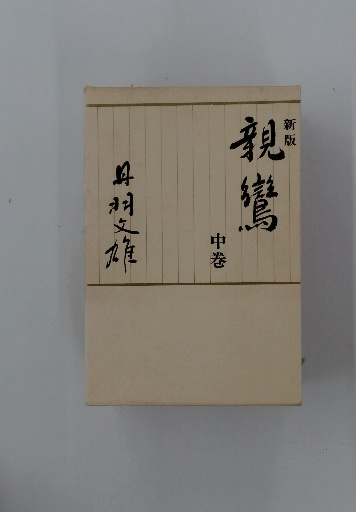 新版
親鸞
中巻
丹羽文雄